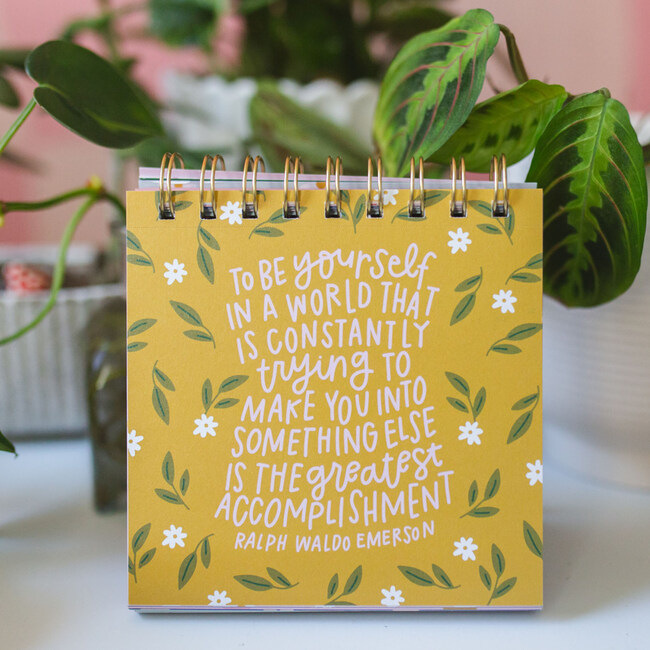 TO BE yourself
IN A WORLD THAT
IS CONSTANTLY
trying TO
MAKE YOU INTO
SOMETHING ELSE
IS THE greatest
ACCOMPLISHMENT
RALPH WALDO EMERSON